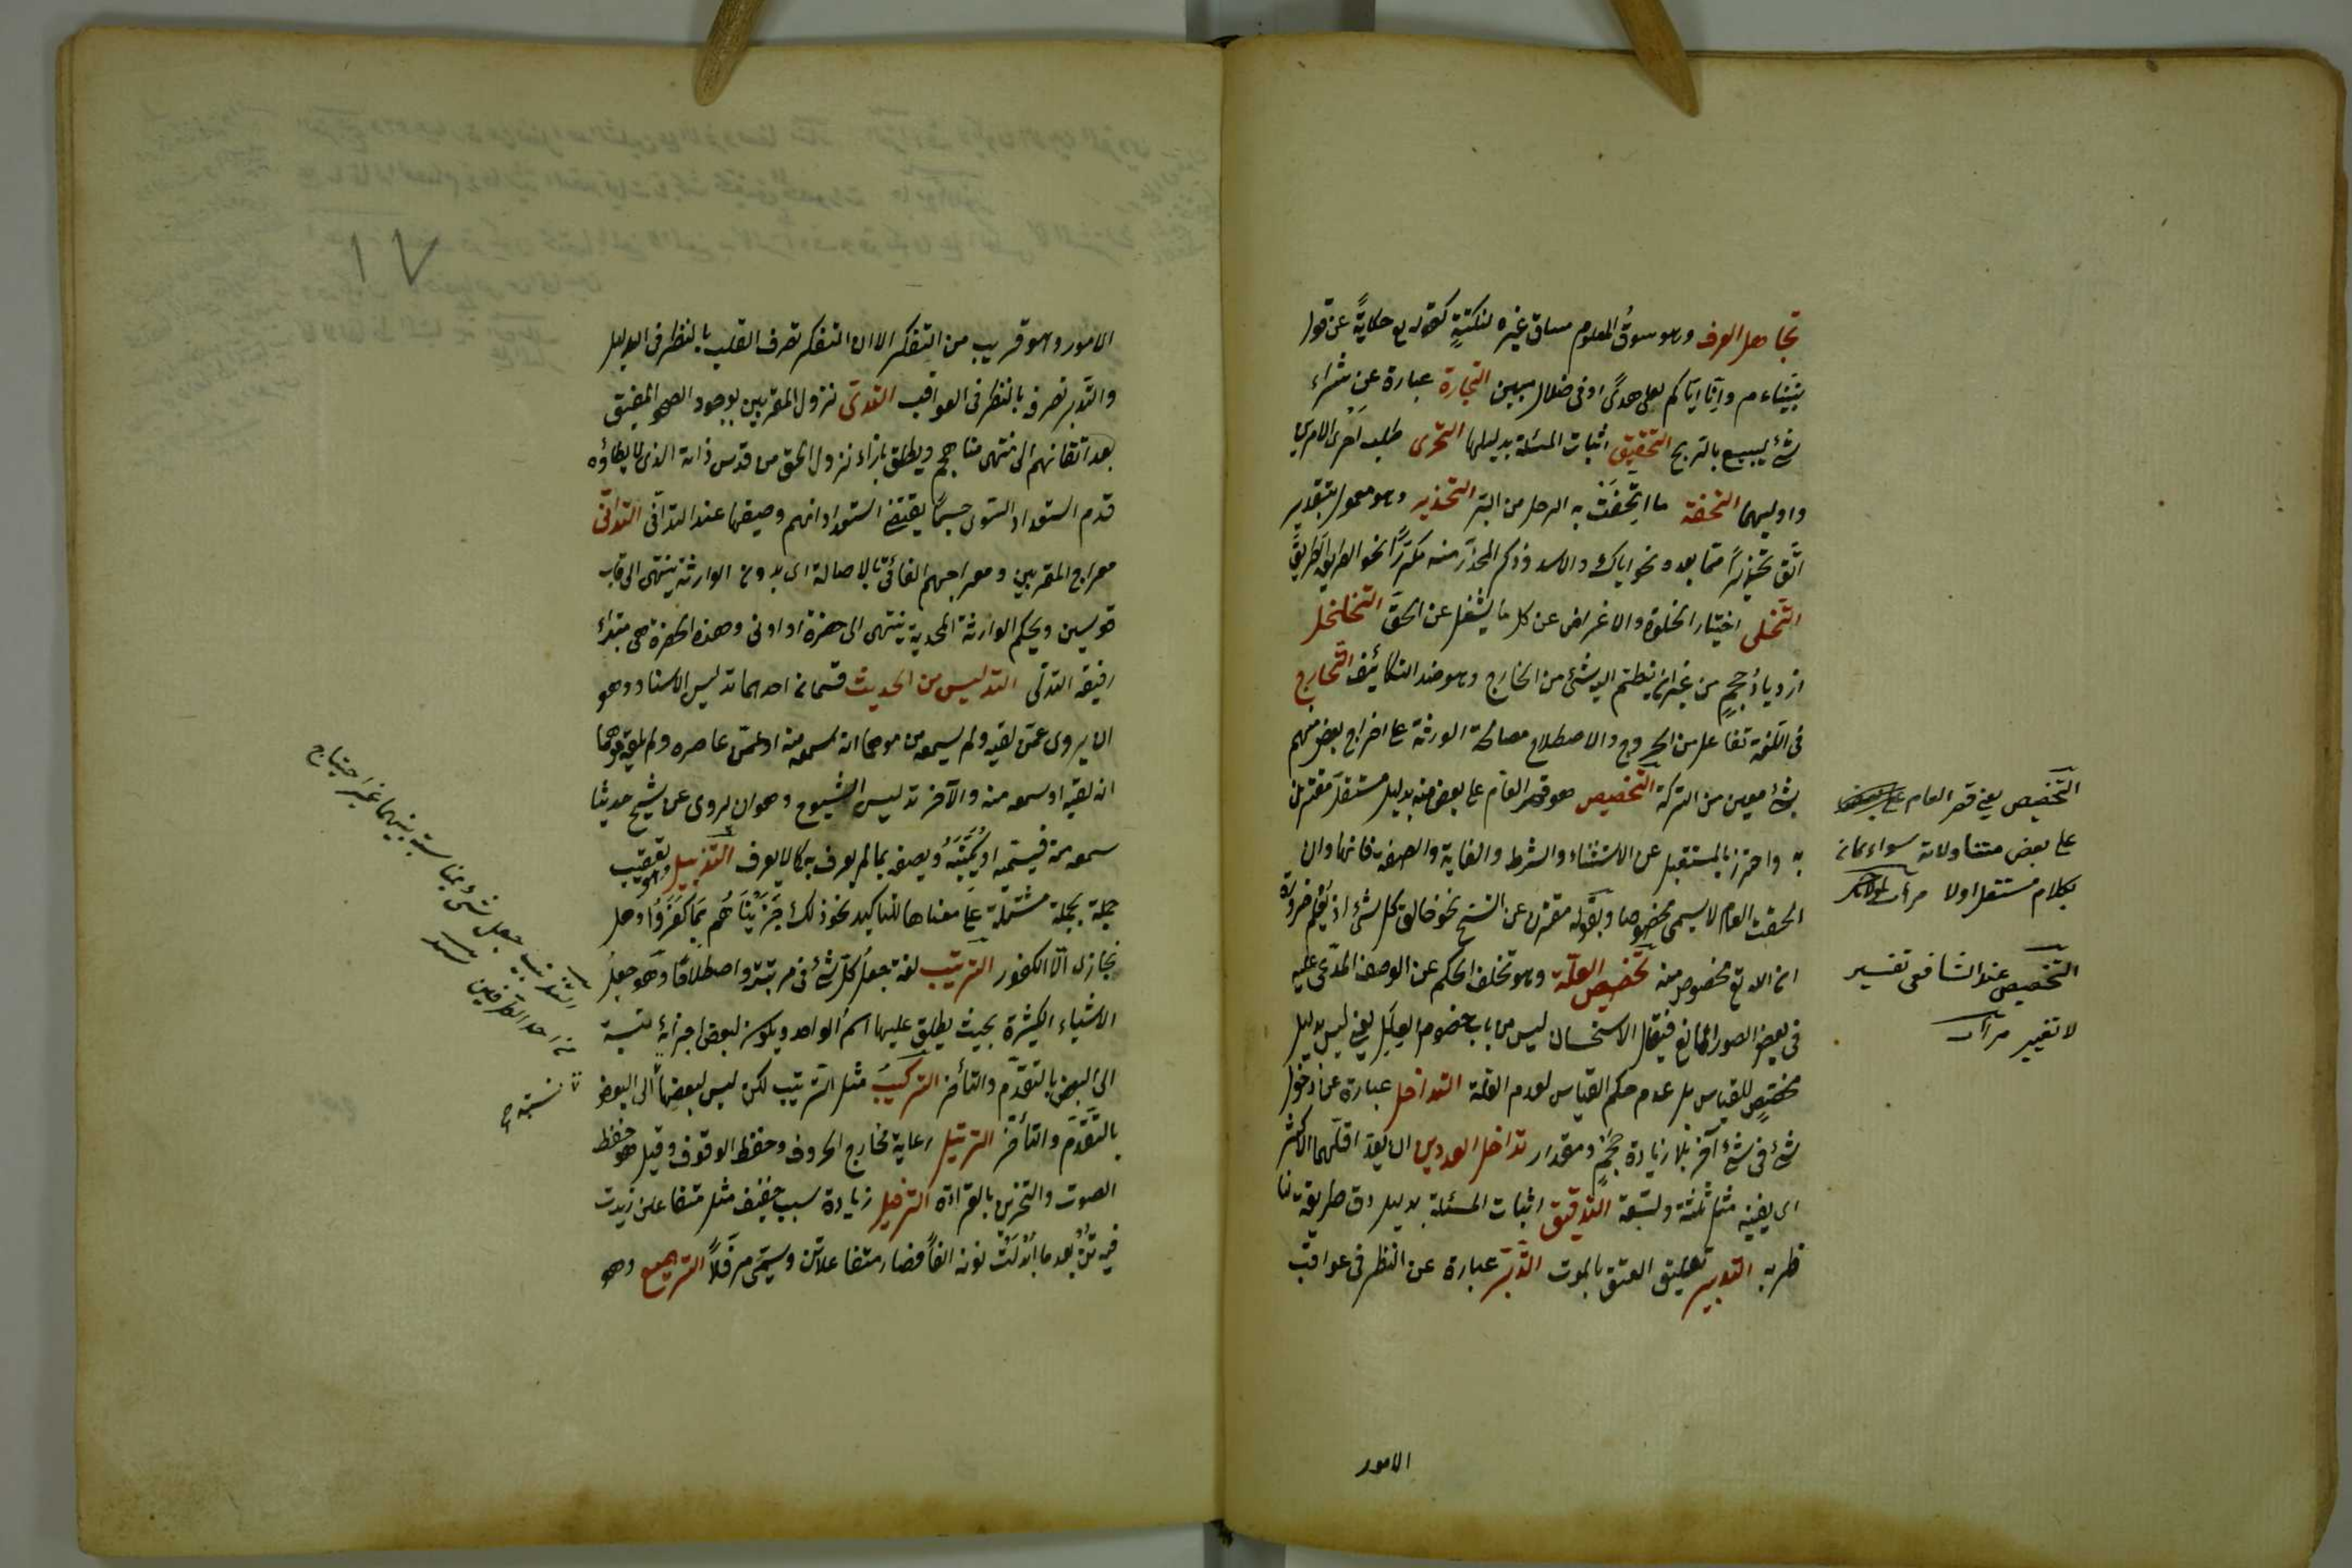 تجاهل العرف وهو سوق المعلوم مساق غيره لنكتةٍ كقوله تع حكايةً عن قول
نبينا ءم وانا اواياكم لعلى هدىً او فى ضلال مبين التجارة عبارة عن شراء
شئ ليبيع بالربح التحقيق اثبات المسئلة بدليلها التحرى طلب احرى الامرين
واوليهما التحفة ما اتحفت به الرجل من البر التحذير وهو معمول بتقدير
اتّق تحذيراً مما بعده نحو اياك والاسد وذكر المحذر منه مكرّراً نحو الطريق الطريق
التخلى اختيار الخلوة والاعراض عن كل ما يشغل عن الحق التخلخل
ازدياد حجمٍ من غير ان ينضم اليه شئ من الخارج وهو ضد التكاثف التخارج
فى اللغة تفاعل من الخروج والاصطلاح مصالحة الورثة على اخراج بعض منهم
بشئ معين من التركة التخصيص هو قصر العام على بعض منه بدليل مستقل مقترن
به واحترز بالمستقل عن الاستثناء والشرط والغاية والصفة فانها وان
لحقت العام لا يسمى مخصوصا وبقوله مقترن عن النسخ نحو خالق كل شئ اذ يعلم ضرورة
ان الله تع مخصوص منه تخصيص العلّة وهو تخلف الحكم عن الوصف المدّعى عليه
فى بعض الصور لمانع فيقال الاستحسان ليس من باب خصوص العلل يعنى ليس بدليل
مخصّصٍ للقياس بل عدم حكم القياس لعدم العلة التداخل عبارة عن دخول
شئ فى شئ آخر بلا زيادة حجمٍ ومقدار تداخل العددين ان يعدّ اقلهما الاكثر
اى يفنيه مثل ثلثة وتسعة التدقيق اثبات المسئلة بدليل دق طريقه لنا
ظربه التدبير تعليق العتق بالموت التدبر عبارة عن النظر فى عواقب
الامور
التخصيص يعنى قصر العام
على بعض متناولاته سواء كان
بكلام مستقل اولا مرآت
التخصيص عند الشافعى تفسير
لا تغيير مرآت
١٧
الامور وهو قريب من التفكر الا ان التفكر تصرف القلب بالنظر فى الدليل
والتدبر تصرفه بالنظر فى العواقب التدلى نزول المقربين بوجود الصحو المفيق
بعد ارتقائهم الى منتهى مناهجهم ويطلق بازاء نزول الحق من قدس ذاته الذى لا يطاؤه
قدم استعداد السوى حسبما يقتضى استعداداتهم وضيقها عند التدانى التدانى
معراج المقربين ومعراجهم الغائى بالاصالة اى بدون الوارثة ينتهى الى قاب
قوسين وبحكم الوارثة المحمدية ينتهى الى حضرة او ادنى وهذه الحضرة هى مبتدأ
رقيقه التدلّى التدليس من الحديث قسمان احدهما تدليس الاسناد وهو
ان يروى عمن لقيه ولم يسمعه منه موهما انه سمعه منه او عمن عاصره ولم يلقه موهما
انه لقيه او سمعه منه والآخر تدليس الشيوخ وهو ان يروى عن شيخ حديثا
سمعه منه فيسميه او يكنيه ويصفه بما لم يعرف به كى لا يعرف التذييل وهو تعقيب
جملة بجملة مشتملة على معناها للتأكيد نحو ذلك جزيناهم بما كفروا وهل
نجازى الّا الكفور الترتيب لغة جعل كلّ شئ فى مرتبته واصطلاحا وهو جعل
الاشياء الكثيرة بحيث يطلق عليها اسم الواحد ويكون لبعض اجزائه نسبة
الى البعض بالتقدّم والتأخر التركيب مثل الترتيب لكن ليس لبعضها الى البعض
بالتقدّم والتأخّر الترتيل رعاية مخارج الحروف وحفظ الوقوف وقيل هو خفظ
الصوت والتحزن بالقراءة الترفيل زيادة سبب خفيف مثل متفاعلن زيدت
فيه تن بعد ما ابدلت نونه الفاً فصار متفاعلاتن ويسمى مرفّلاً الترصيع وهو
جعل شئ بمناسبة بينهما غير احتياج
من احد الطرفين